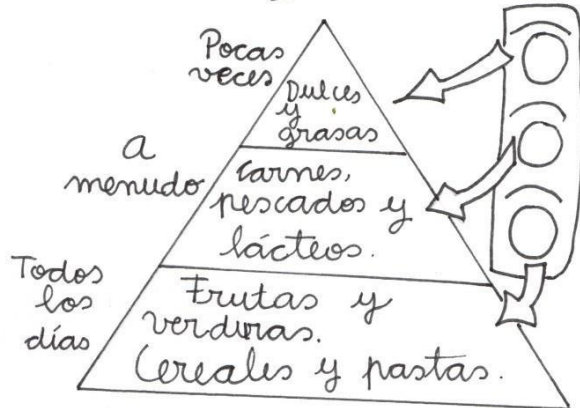 Pocas
veces
Dulces
y
grasas
a
menudo
Carnes,
pescados y
lácteos.
Todos
los
días
Frutas y
verduras.
Cereales y pastas.